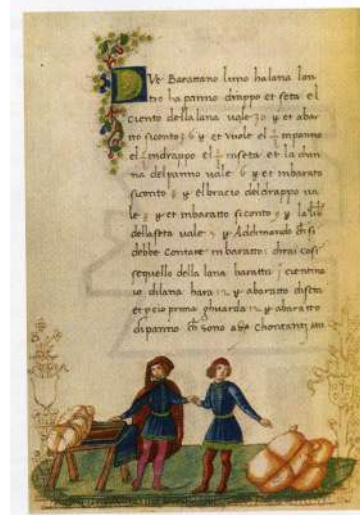 DVe Barattano luno ha lana lon
tro ha panno drappo et seta el
ciento della lana uale 30 y et abar
siconto 36 y et vuole el panno
el indrappo el inseta et la
na del panno uale 6 y et inbarato
siconto 8 y elbracio del drappo ua
le y et inbaratto siconto 9 y la
della seta uale y Adimando si
debbe Contare inbaratto: dirai cosi
se quello della lana baratta j cientina
io dilana hara 12 y abaratto diseta
et pcio prima ghuarda 12 y abaratto
dipanno sono a Chontantj